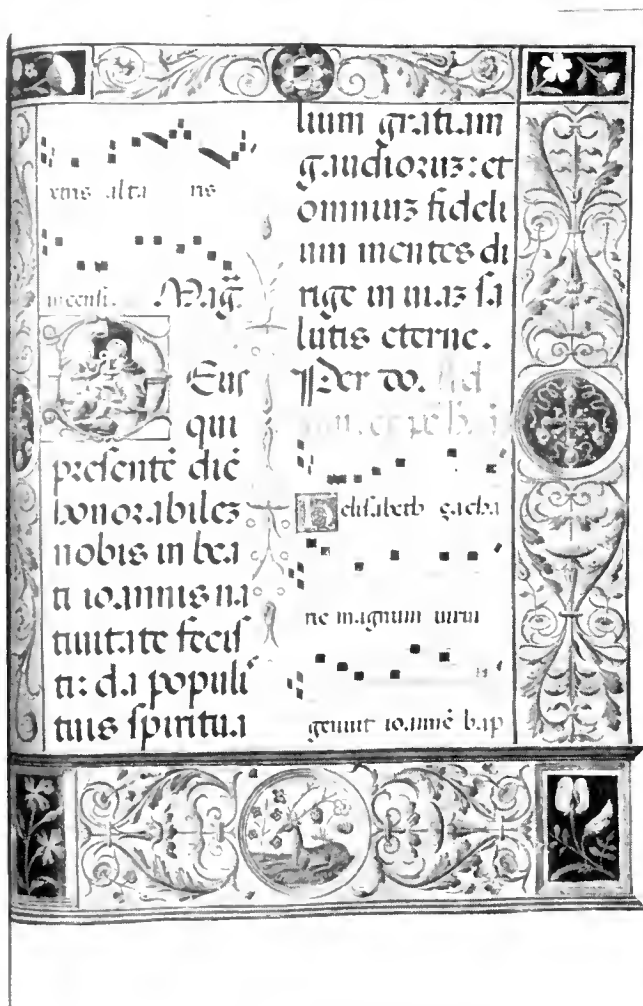 xtris alta ris
incensi. Mag̃.
Eus
qui
presentē diē
honorabilez
nobis in bea
ti ioannis na
tiuitate fecis
ti: da populi
tuis spiritua
lium gratiam
gaudioruz: et
omniuz fideli
um mentes di
rige in uiaz sa
lutis eterne.
Per do.
elisabeth zacha
rie magnum uirum
genuit ioannē bap